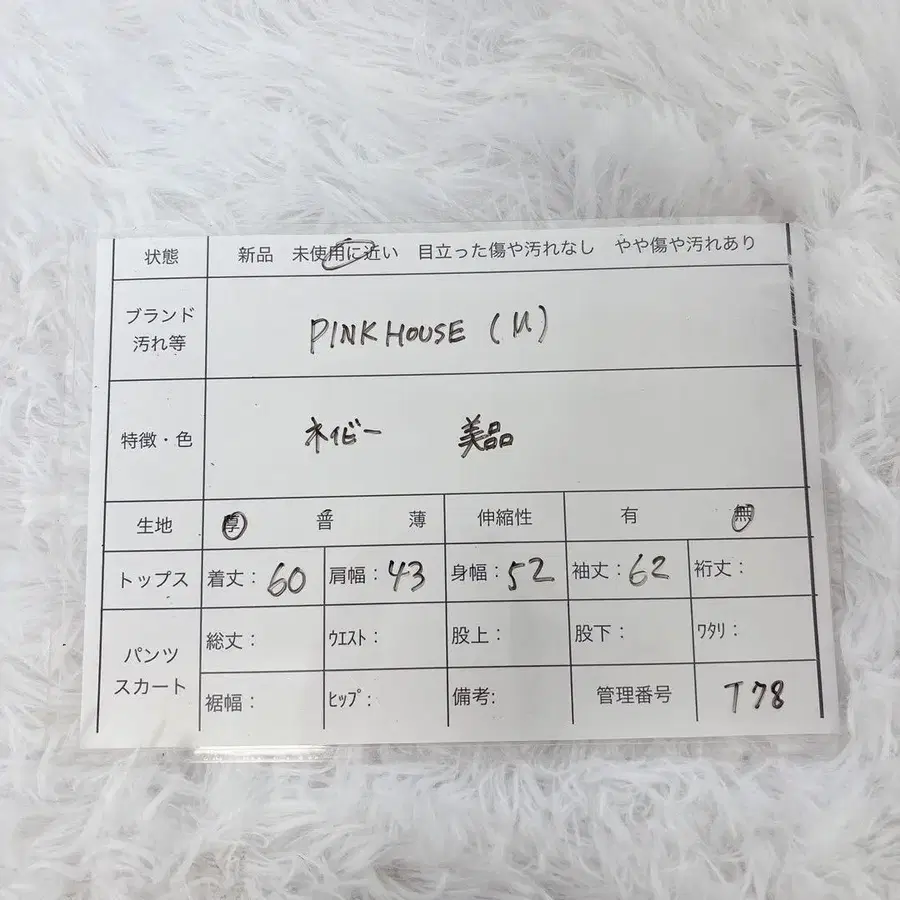 状態 新品 未使用に近い 目立った傷や汚れなし やや傷や汚れあり
ブランド
汚れ等
PINK HOUSE (M)
特徴・色 ネイビー 美品
生地 厚 普 薄 伸縮性 有 無
トップス 着丈：60 肩幅：43 身幅：52 袖丈：62 裄丈：
パンツ
スカート
総丈： ｳｴｽﾄ： 股上： 股下： ﾜﾀﾘ：
裾幅： ﾋｯﾌﾟ： 備考: 管理番号 T78